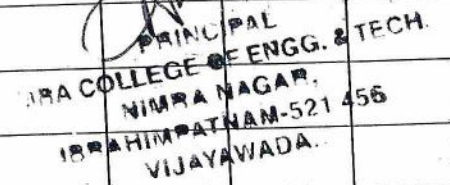 PRINCIPAL
IRA COLLEGE OF ENGG. & TECH.
NIMRA NAGAR,
IBRAHIMPATNAM-521 456
VIJAYAWADA.